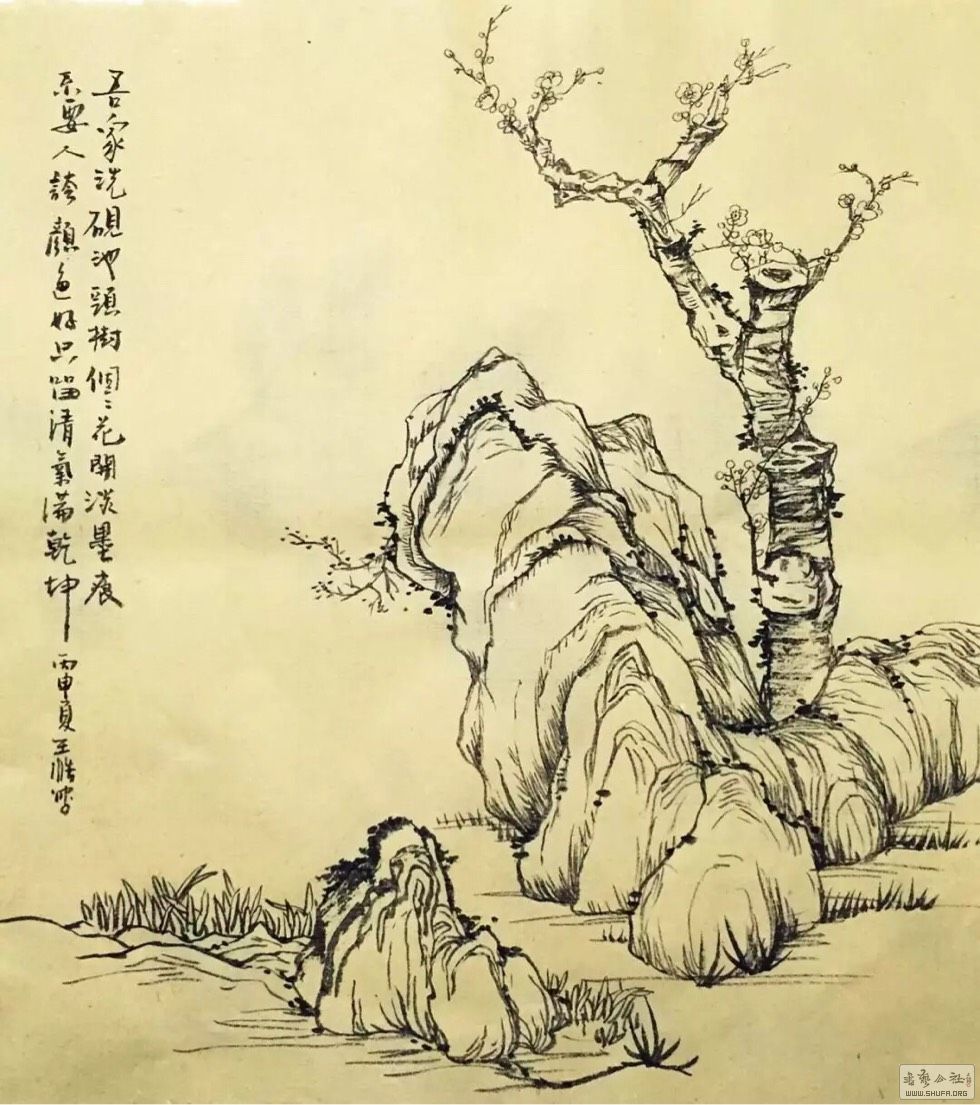 吾家洗硯池頭樹個〻花開淡墨痕
不要人誇顏色好只留清氣滿乾坤
丙申夏王
书艺公社
WWW.SHUFA.ORG